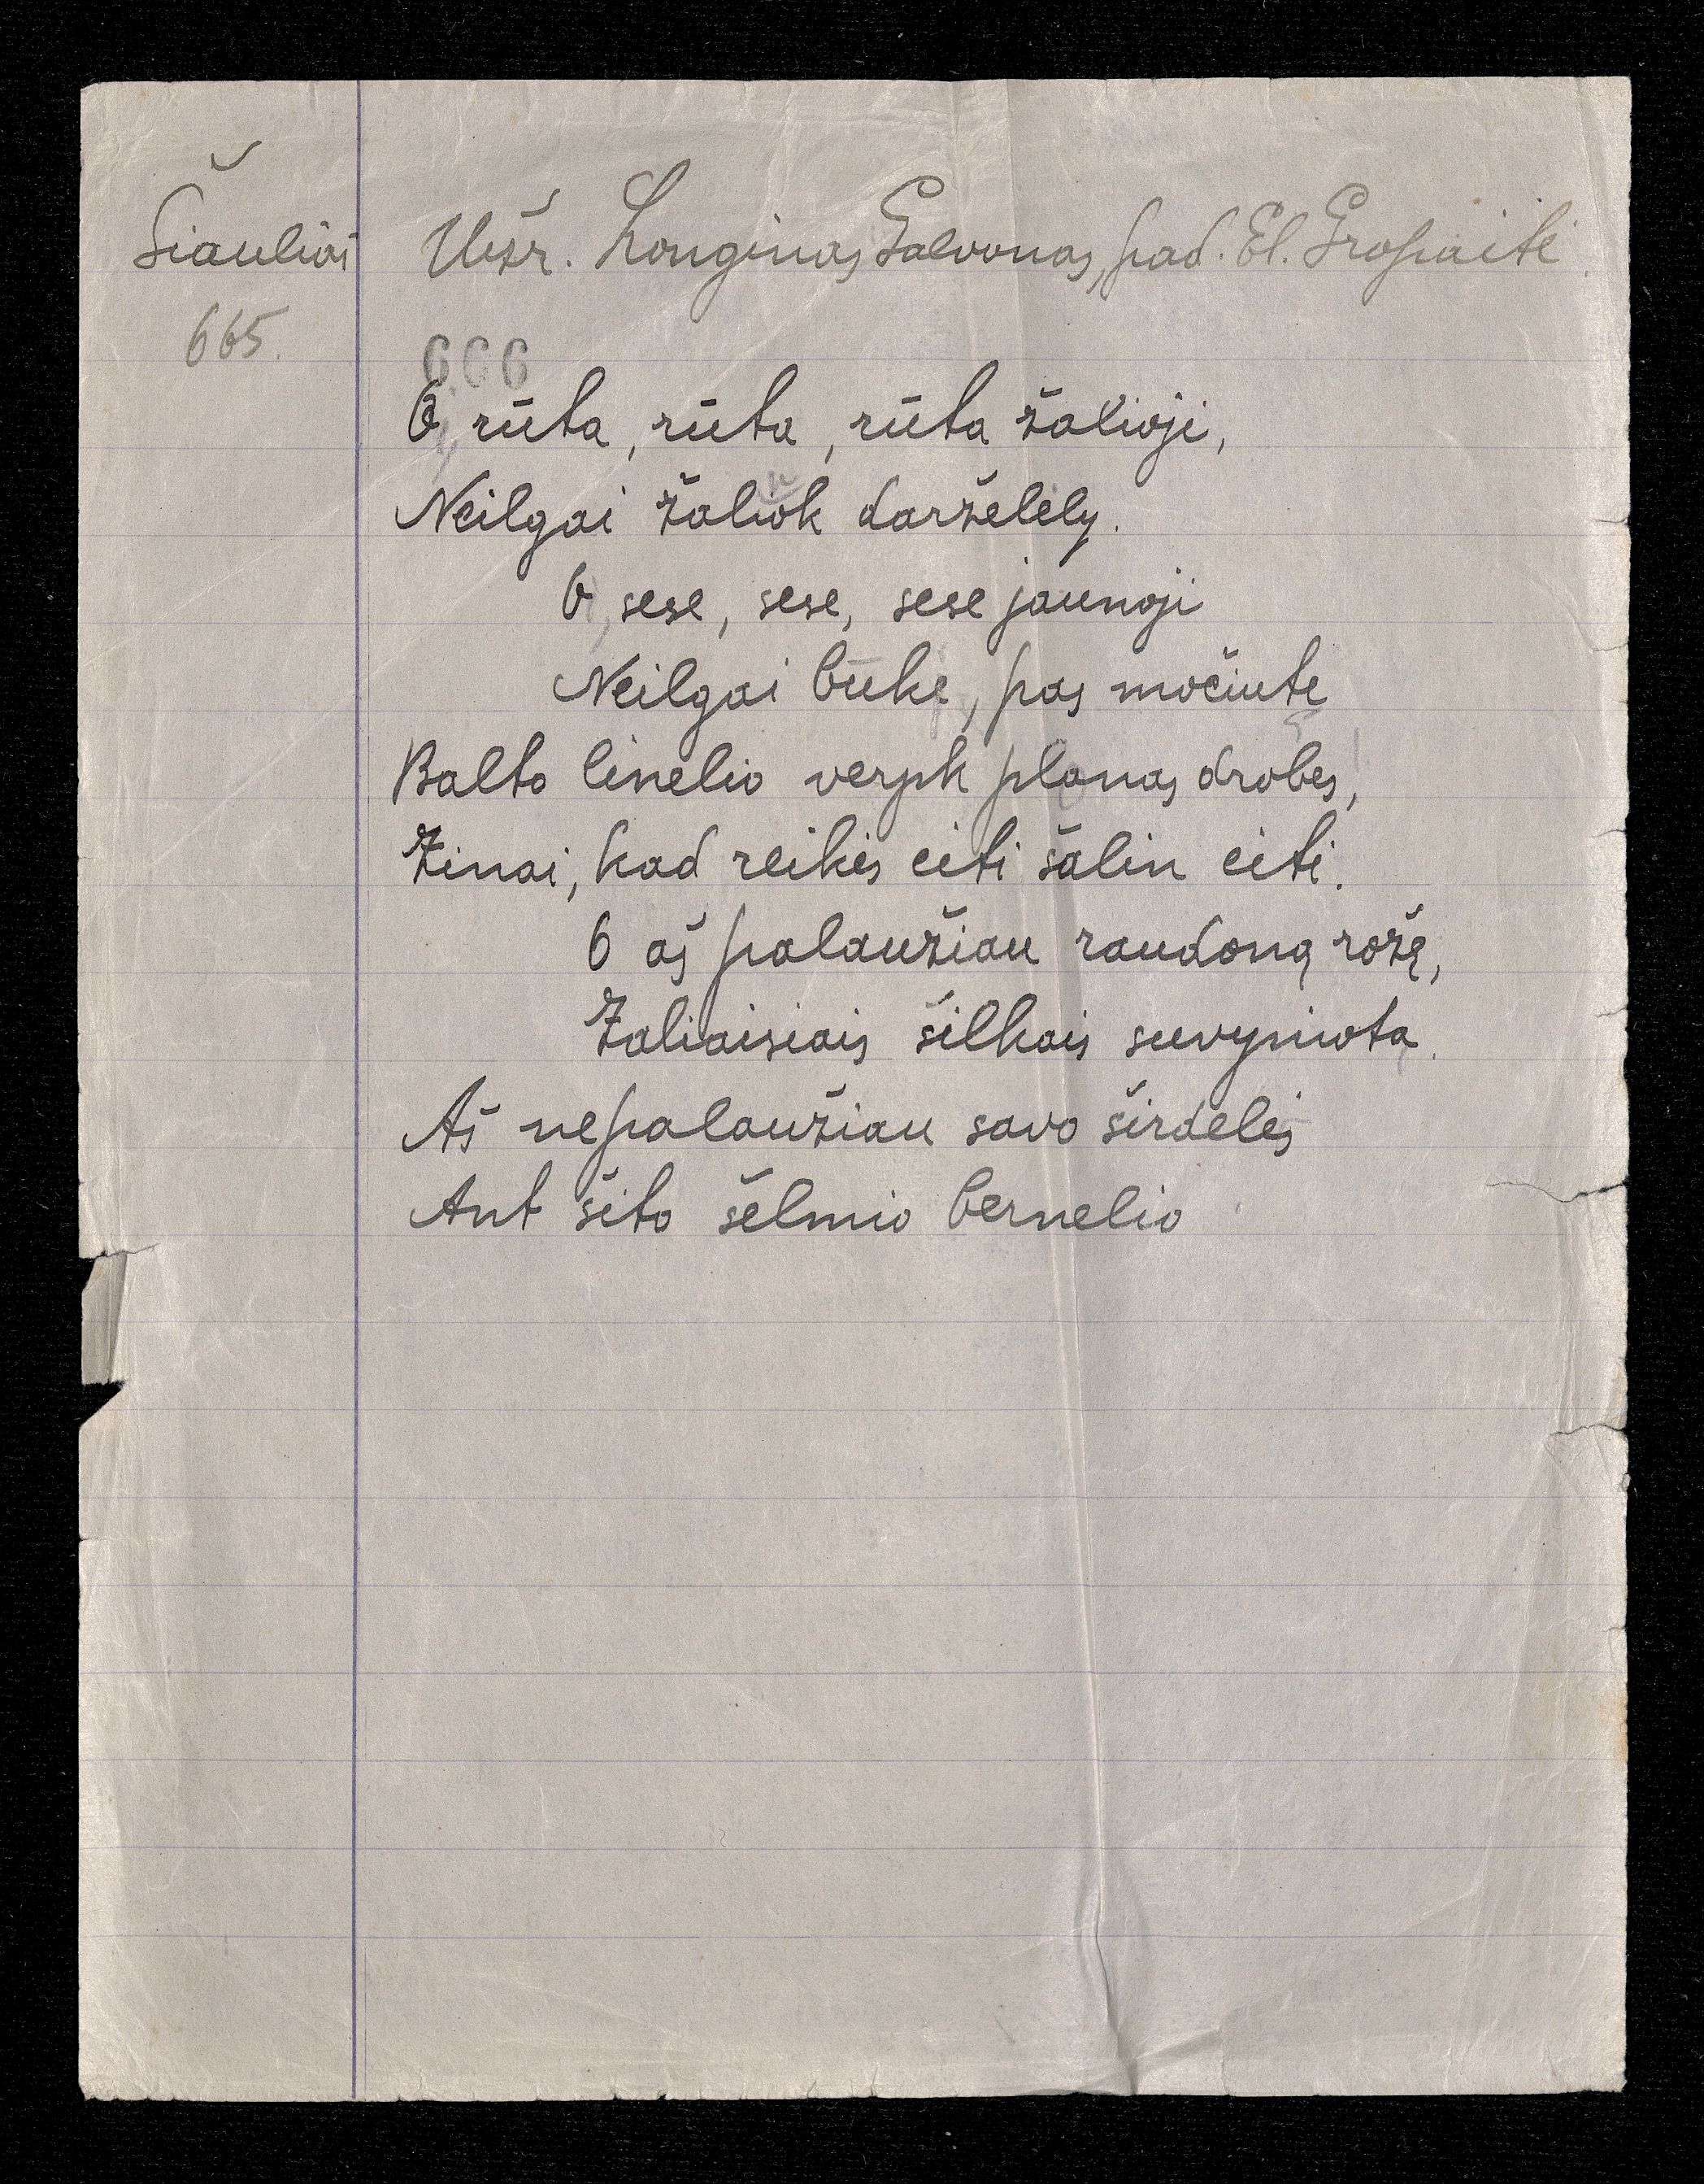 Šiauliai
Užr. Longinas Galvonas, pad. El. Gropaitė.
665.
666
O, rūta, rūta, rūta žalioji,
Neilgai žaliok darželėly.
O, sese, sese, sese jaunoji
Neilgai būke, pas močiutę
Balto linelio verpk plonas drobes,
Žinai, kad reikės eiti šalin eiti.
O aš palaužiau raudoną rožę,
Žaliaisiais šilkais suvyniota.
Aš nepalaužiau savo širdelės
Ant šito šelmio bernelio